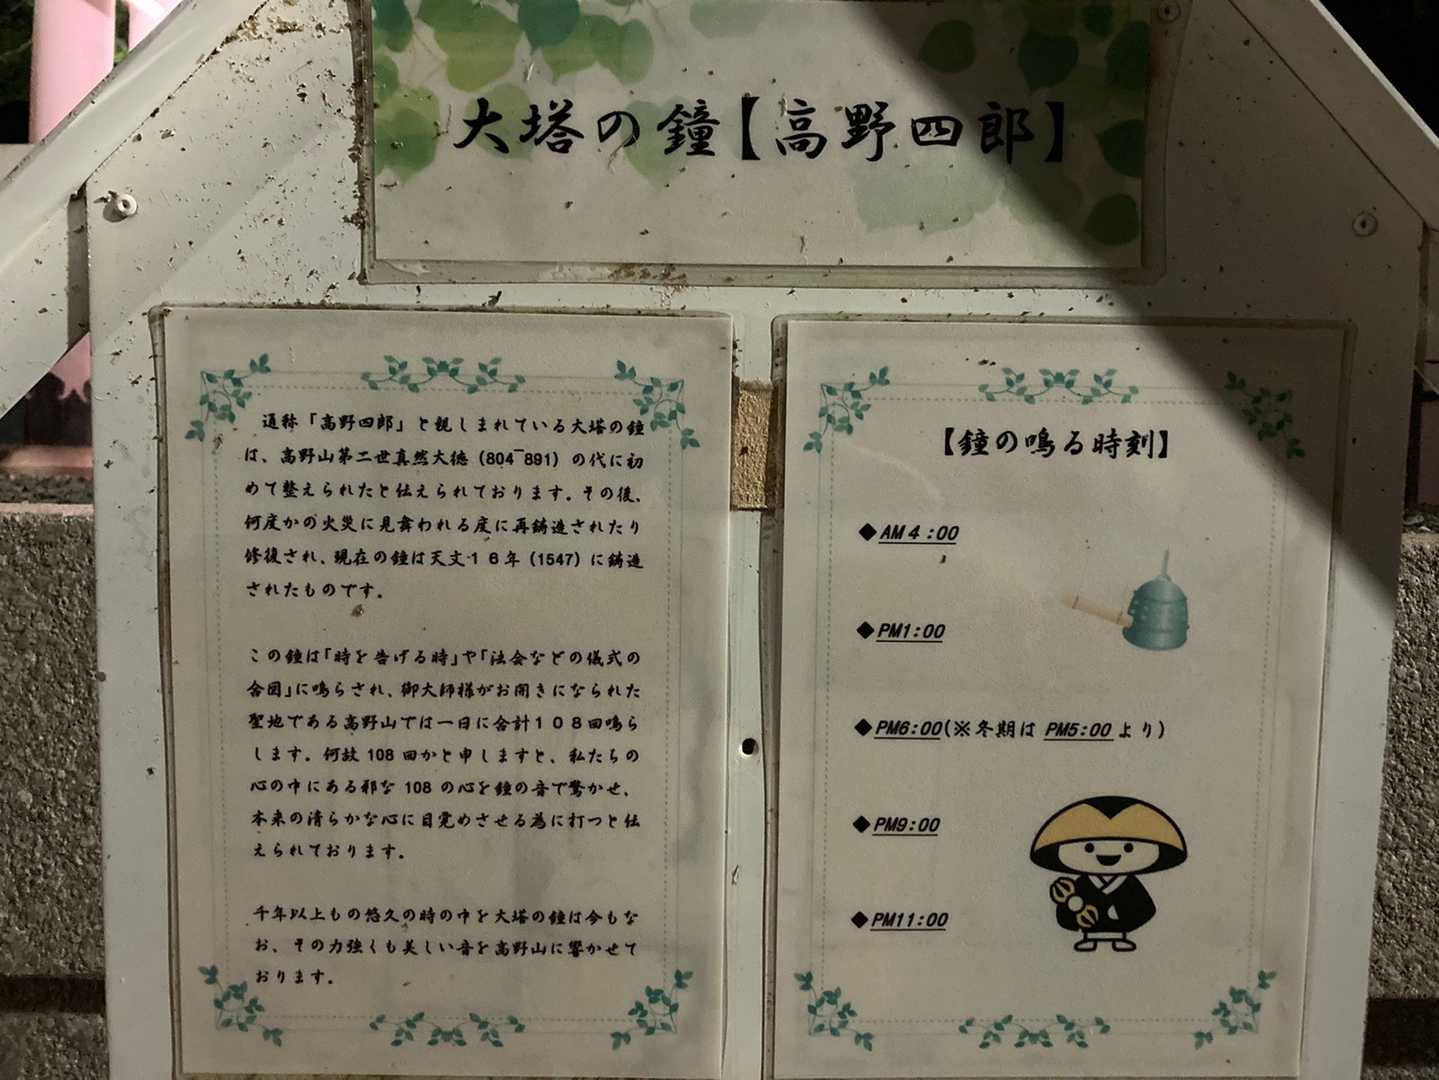 大塔の鐘【高野四郎】
通称「高野四郎」と親しまれている大塔の鐘
は、高野山第二世真然大徳（804‾891）の代に初
めて整えられたと伝えられております。その後、
何度かの火災に見舞われる度に再鋳造されたり
修復され、現在の鐘は天文１６年（1547）に鋳造
されたものです。
この鐘は「時を告げる時」や「法会などの儀式の
合図」に鳴らされ、御大師様がお開きになられた
聖地である高野山では一日に合計１０８回鳴ら
します。何故 108 回かと申しますと、私たちの
心の中にある邪な 108 の心を鐘の音で驚かせ、
本来の清らかな心に目覚めさせる為に打つと伝
えられております。
千年以上もの悠久の時の中を大塔の鐘は今もな
お、その力強くも美しい音を高野山に響かせて
おります。
【鐘の鳴る時刻】
◆AM４:00
◆PM1:00
◆PM6:00(※冬期は PM5:00 より)
◆PM9:00
◆PM11:00